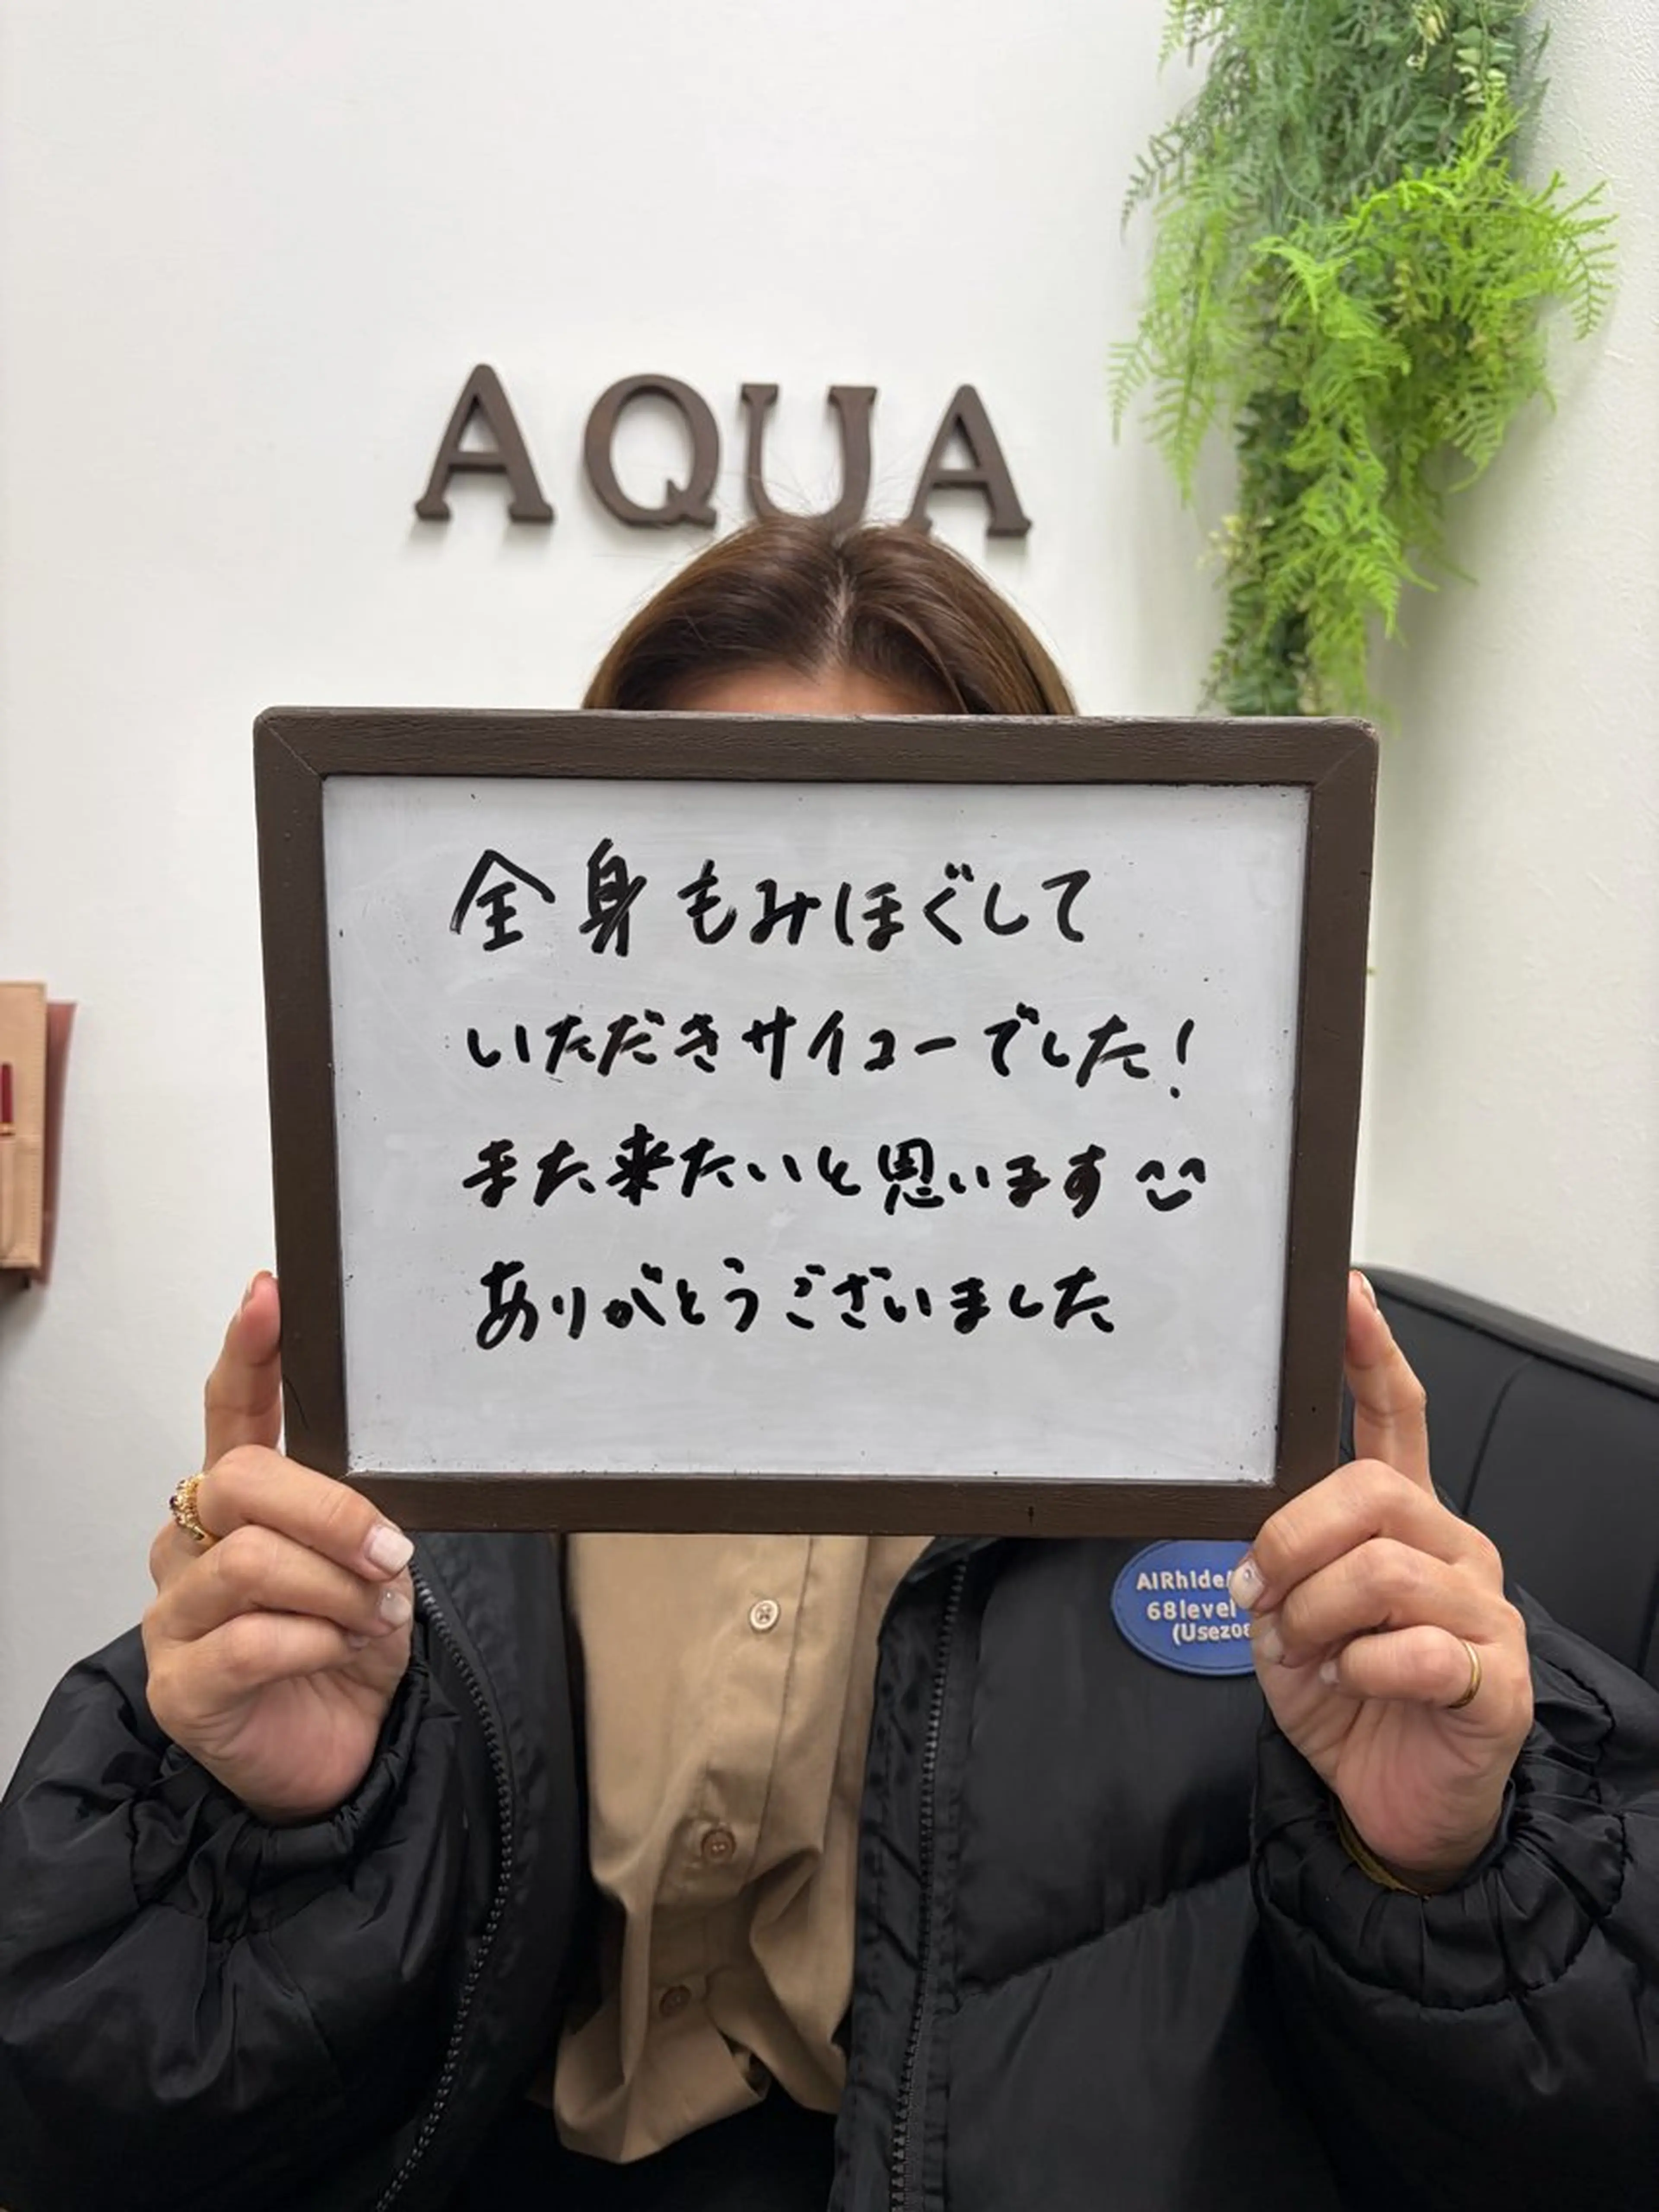 AQUA
全身もみほぐして
いただきサイコーでした!
また来たいと思います^^
ありがとうございました
68level